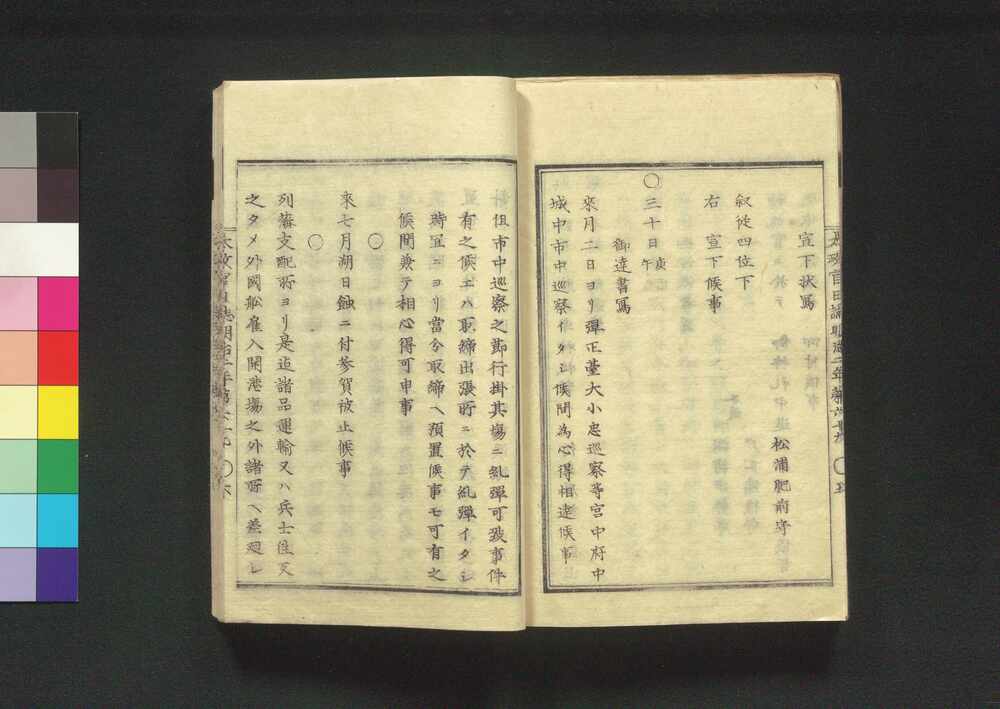 宣下状寫
松浦肥前守
叙從四位下
右　宣下候事
○三十日庚午
御達書寫
來月二日ヨリ彈正臺大小忠巡察等宮中府中
城中市中巡察イタシ候間為心得相達候事
但市中巡察之節行掛其場ニ糺彈可致事件
有之候ヱハ取締出張所ニ於テ糺彈イタシ
時宜ニヨリ當分取締ヘ預置候事モ可有之
候間兼テ相心得可申事
○
來七月湖日蝕ニ付参賀被止候事
○
列藩支配所ヨリ是迄諸品運輸又ハ兵士往
之タメ外國船雇入開港場之外諸所ヘ差廻シ
太政官日誌明治二年第六十九　○五
太政官日誌明治二年第六十九　○六